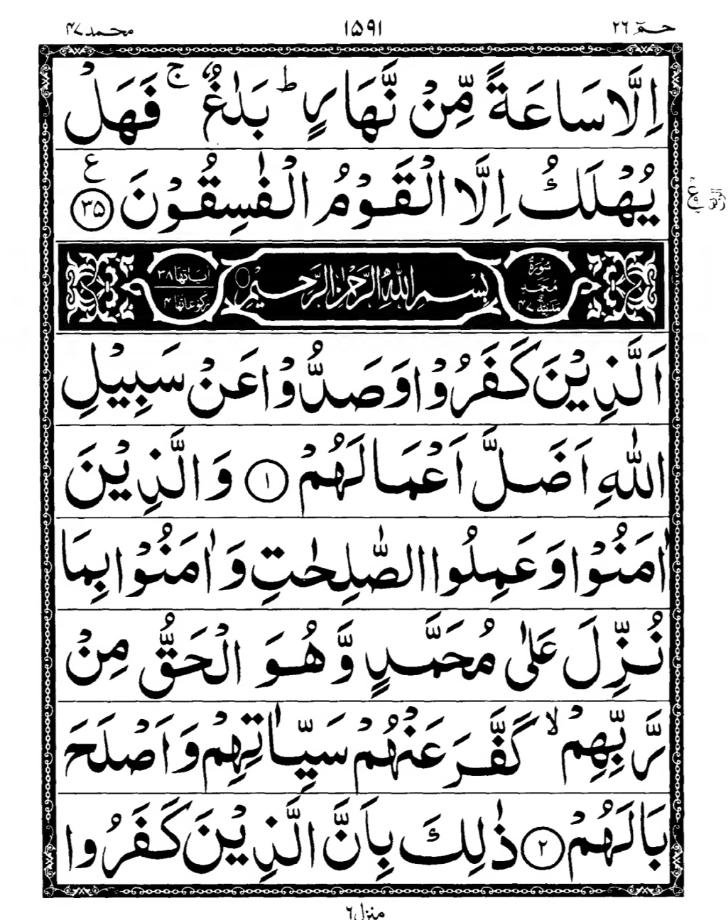 حٰمٓ ٢٦ ١٥٩١ محمد ٤٧
اِلَّا سَاعَةً مِّنْ نَّهَارٍ ؕ بَلٰغٌ ۚ فَهَلْ
يُهْلَكُ اِلَّا الْقَوْمُ الْفٰسِقُوْنَ ﴿٣٥﴾ ع
سُوْرَةُ مُحَمَّدٍ مَدَنِيَّةٌ ٤٧ بِسْمِ اللّٰهِ الرَّحْمٰنِ الرَّحِيْمِ اٰيَاتُهَا ٣٨ رُكُوْعَاتُهَا ٤
اَلَّذِيْنَ كَفَرُوْا وَصَدُّوْا عَنْ سَبِيْلِ
اللّٰهِ اَضَلَّ اَعْمَالَهُمْ ﴿١﴾ وَالَّذِيْنَ
اٰمَنُوْا وَعَمِلُوا الصّٰلِحٰتِ وَاٰمَنُوْا بِمَا
نُزِّلَ عَلٰى مُحَمَّدٍ وَّهُوَ الْحَقُّ مِنْ
رَّبِّهِمْ ۙ كَفَّرَ عَنْهُمْ سَيِّاٰتِهِمْ وَاَصْلَحَ
بَالَهُمْ ﴿٢﴾ ذٰلِكَ بِاَنَّ الَّذِيْنَ كَفَرُوا
منزل ٦